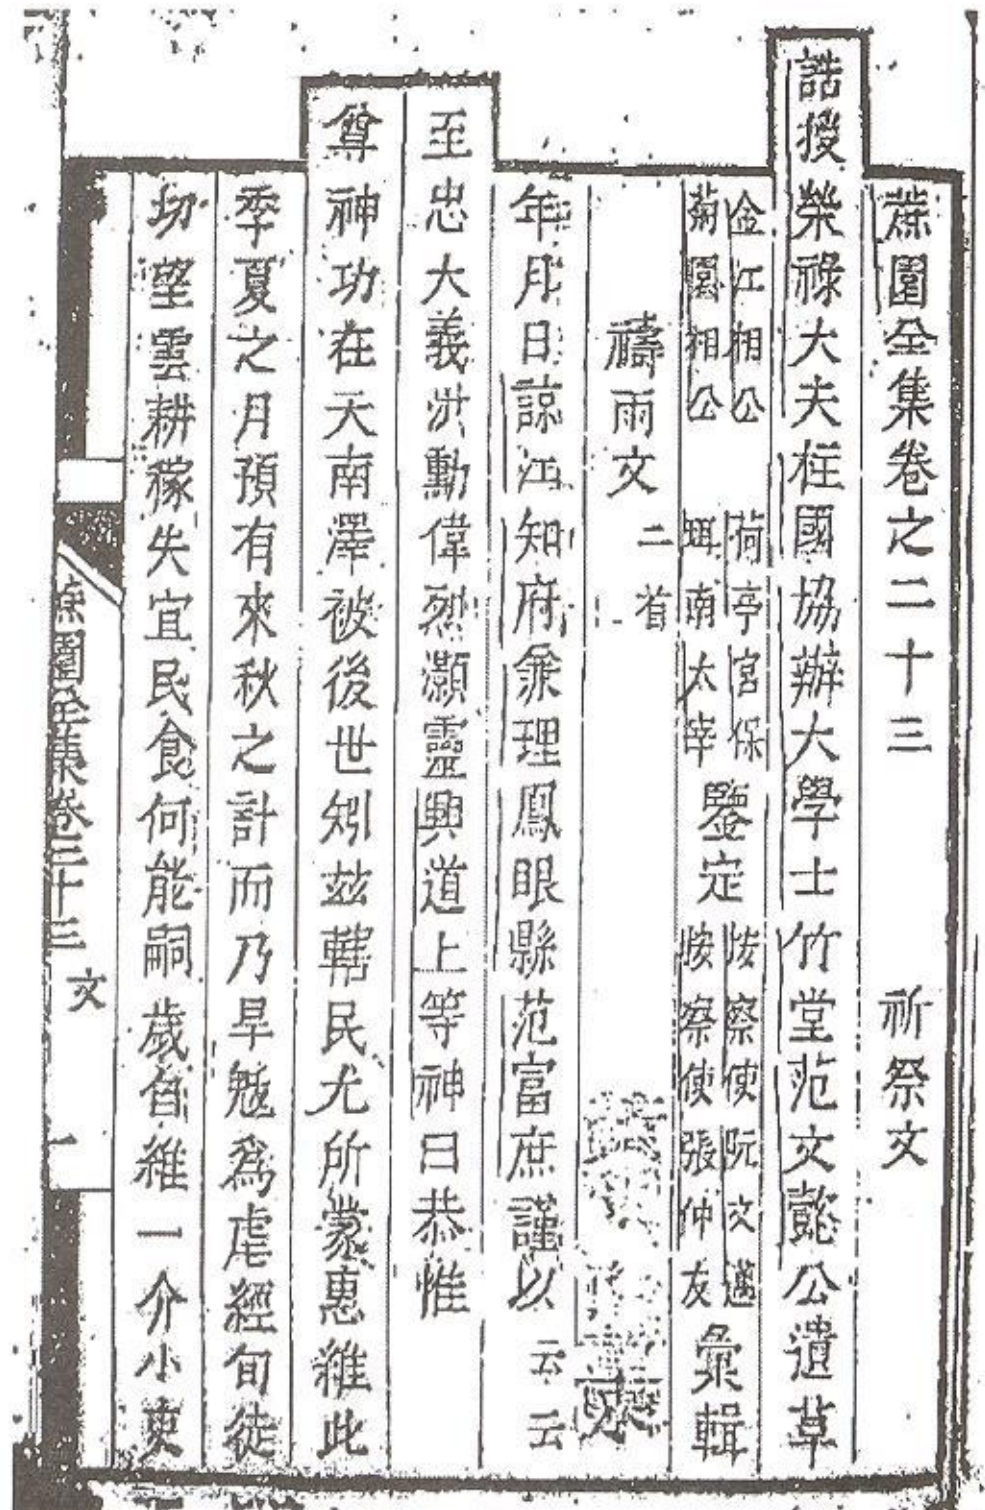 蔗園全集卷之二十三 祈祭文
誥授榮祿大夫柱國協辦大學士竹堂范文懿公遺草
金江相公 荷亭宮保
菊園相公 珥南太宰
鑒定
按察使阮文邁
按察使張仲友
彙輯
禱雨文 二首
年月日諒江知府兼理鳳眼縣范富庶謹以云云
至忠大義洪勳偉烈灝靈興道上等神曰恭惟
尊神功在天南澤被後世矧茲轄民尤所蒙惠維此
季夏之月預有來秋之計而乃旱魃爲虐經旬徒
切望雲耕稼失宜民食何能嗣歲自維一介小吏
蔗園全集卷二十三 文 一